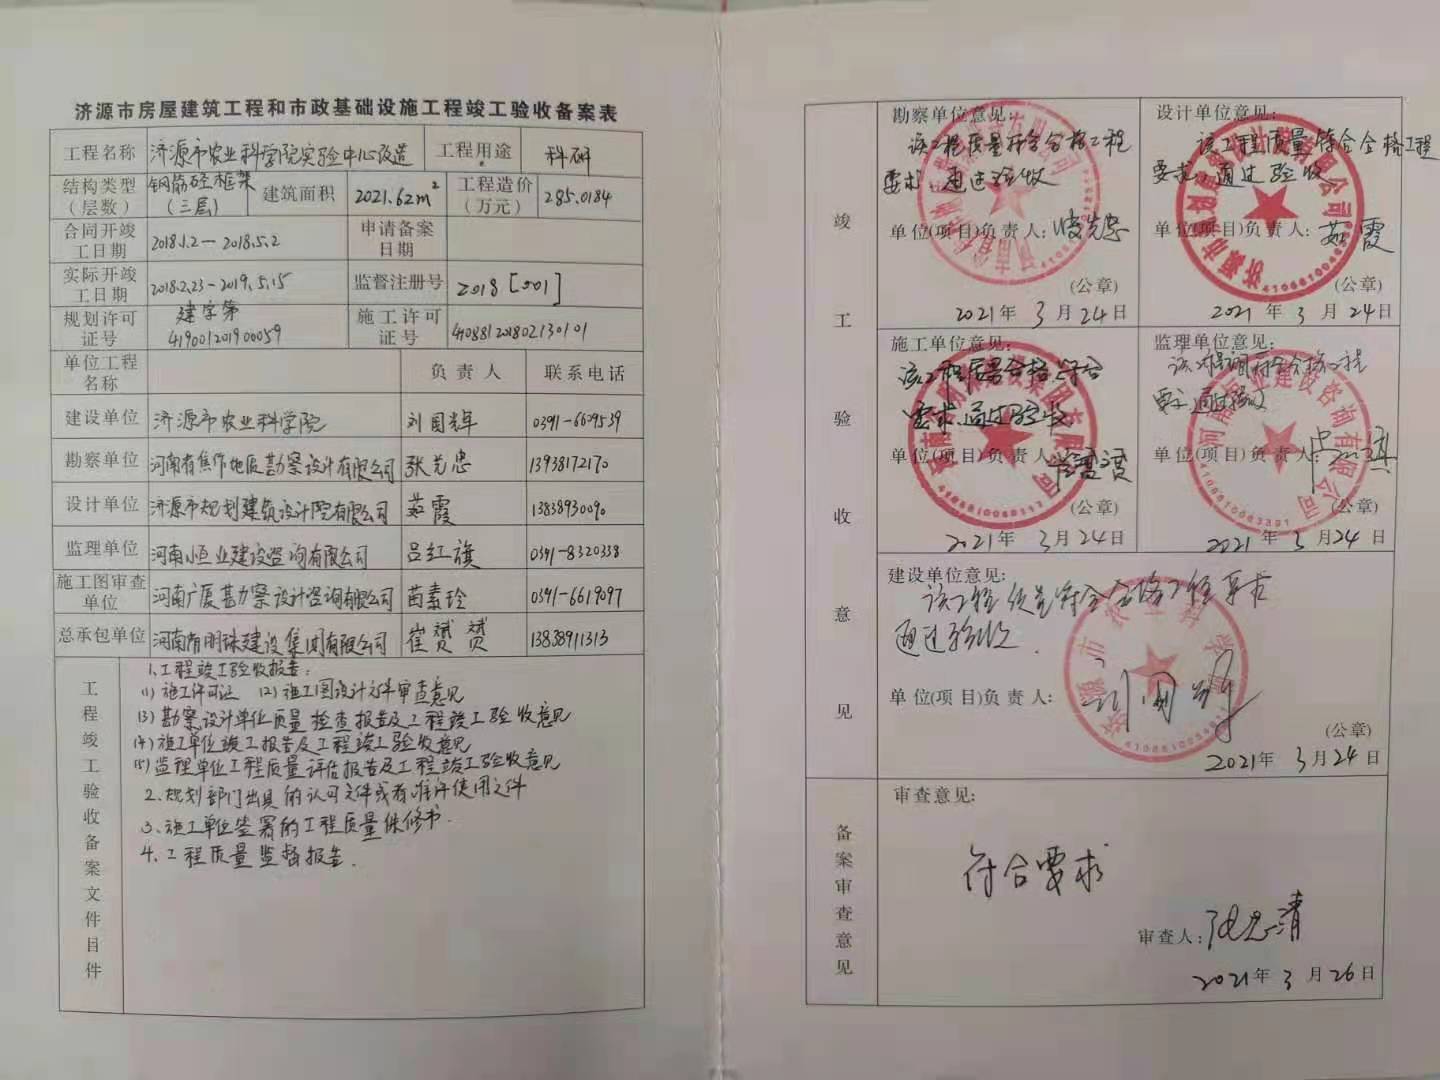 济源市房屋建筑工程和市政基础设施工程竣工验收备案表
工程名称 济源市农业科学院实验中心改造 工程用途 科研
结构类型（层数） 钢筋砼框架（三层） 建筑面积 2021.62m² 工程造价（万元） 285.0184
合同开竣工日期 2018.1.2－2018.5.2 申请备案日期
实际开竣工日期 2018.2.23－2019.5.15 监督注册号 2018［001］
规划许可证号 建字第419001201900059 施工许可证号 410881201802130101
单位工程名称 负责人 联系电话
建设单位 济源市农业科学院 刘国 0391-6609539
勘察单位 河南省焦作地质勘察设计有限公司 张先忠 13938172170
设计单位 济源市规划建筑设计院有限公司 茹霞 13838930090
监理单位 河南恒业建设咨询有限公司 吕红旗 0391-8320338
施工图审查单位 河南广厦勘察设计咨询有限公司 苗素玲 0391-6619097
总承包单位 河南省明珠建设集团有限公司 崔赟赟 13838911313
工程竣工验收备案文件目件
1、工程竣工验收报告：
(1) 施工许可证 (2) 施工图设计文件审查意见
(3) 勘察设计单位质量检查报告及工程竣工验收意见
(4) 施工单位竣工报告及工程竣工验收意见
(5) 监理单位工程质量评估报告及工程竣工验收意见
2、规划部门出具的认可文件或者准许使用文件
3、施工单位签署的工程质量保修书.
4、工程质量监督报告.
竣工验收意见
勘察单位意见：
该工程质量符合合格工程
要求 通过验收
单位(项目)负责人: 张先忠
(公章)
2021年3月24日
设计单位意见：
该工程质量符合合格工程
要求，通过验收
单位(项目)负责人: 茹霞
(公章)
2021年3月24日
济源市规划建筑设计院有限公司
施工单位意见：
该工程质量合格，符合
要求，通过验收
单位(项目)负责人
(公章)
2021年3月24日
监理单位意见：
该工程质量符合合格工程
要求 通过验收
单位(项目)负责人
(公章)
2021年3月24日
河南恒业建设咨询有限公司
建设单位意见：
该工程质量符合合格工程要求
通过验收.
单位(项目)负责人:
(公章)
2021年3月24日
济源市农业科学院
备案审查意见
审查意见:
符合要求
审查人:
2021年3月26日